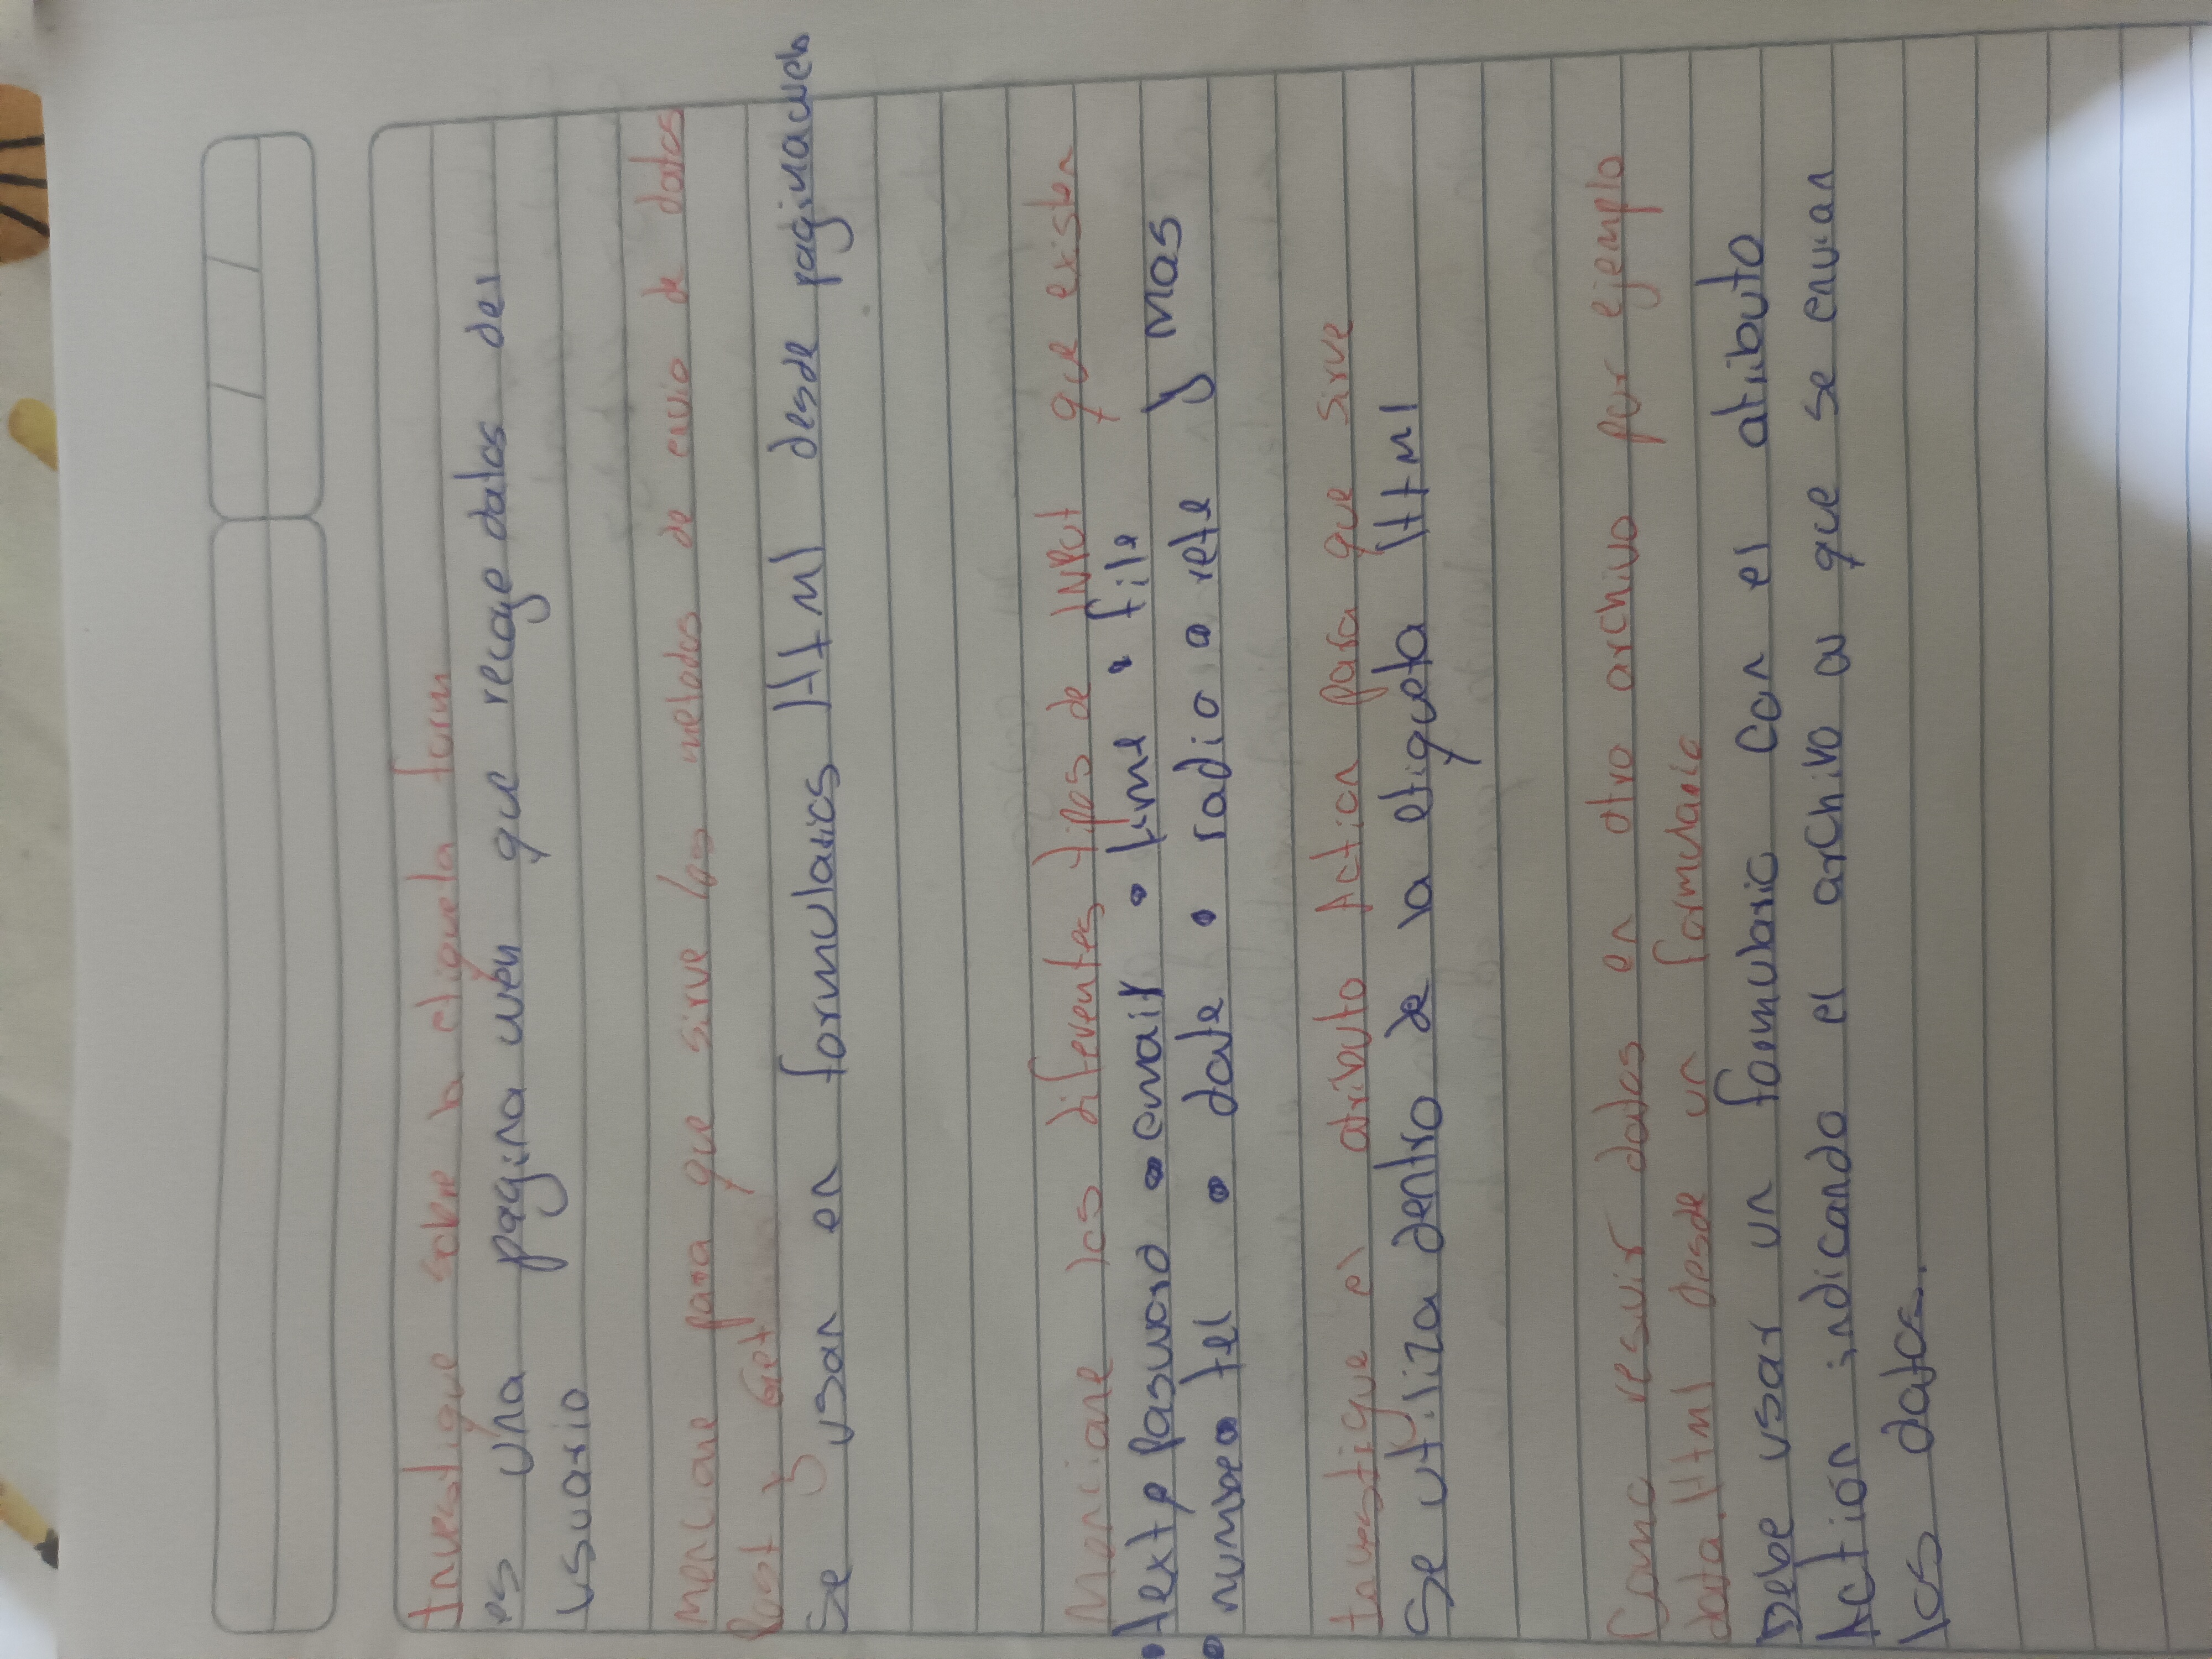 Investigue sobre la etiqueta form
es una pagina web que recoge datos del
usuario
Mencione para que sirve los metodos de envio de datos
Post y Get
Se usan en formularios Html desde paginaweb
Moncione los diferentes tipos de INPUT que existen
• text pasword • email • time • file
• number • tel • date • radio • rete y mas
Investigue el atributo Action para que sirve
Se utiliza dentro de la etiqueta Html
Como resivir datos en otro archivo por ejemplo
data.Html desde un formulario
Debe usar un formulario con el atributo
Action indicando el archivo a que se envian
los datos.